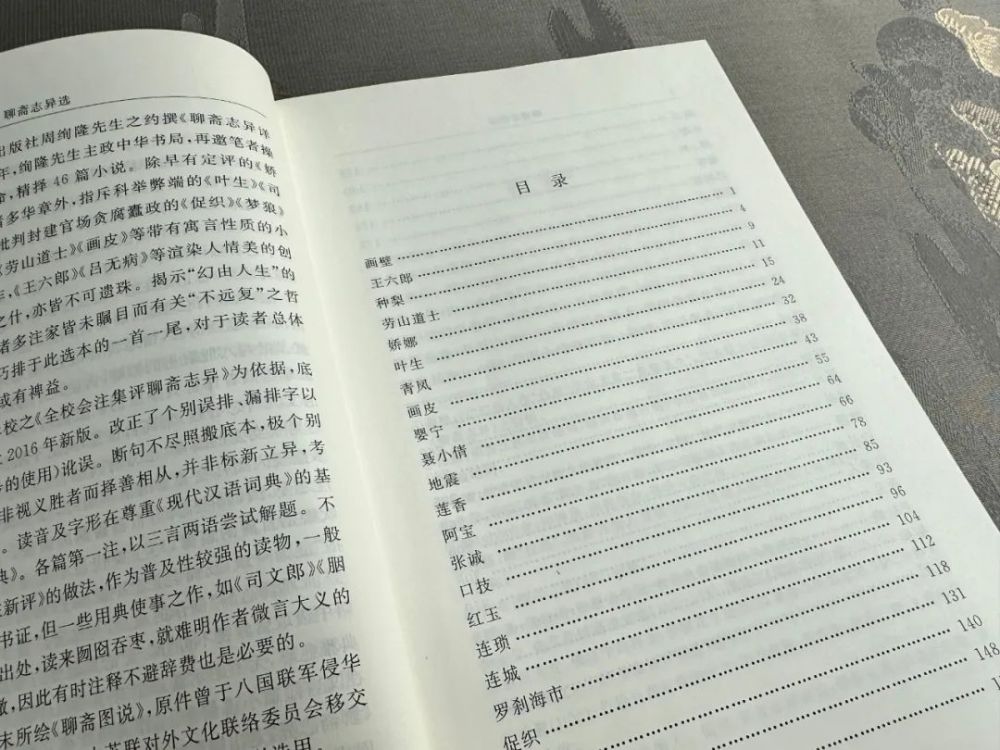 聊斋志异选
出版社周绚隆先生之约撰《聊斋志异详
年,绚隆先生主政中华书局,再邀笔者操
,精择 46 篇小说。除早有定评的《娇
诸多华章外,指斥科举弊端的《叶生》《司
批判封建官场贪腐蠹政的《促织》《梦狼》
《劳山道士》《画皮》等带有寓言性质的小
,《王六郎》《吕无病》等渲染人情美的创
之什,亦皆不可遗珠。揭示“幻由人生”的
诸多注家皆未瞩目而有关“不远复”之哲
巧排于此选本的一首一尾,对于读者总体
或有裨益。
校之《全校会注集评聊斋志异》为依据,底
2016 年新版。改正了个别误排、漏排字以
的使用)讹误。断句不尽照搬底本,极个别
非视义胜者而择善相从,并非标新立异,考
。读音及字形在尊重《现代汉语词典》的基
典》。各篇第一注,以三言两语尝试解题。不
新评》的做法,作为普及性较强的读物,一般
书证,但一些用典使事之作,如《司文郎》《胭
出处,读来囫囵吞枣,就难明作者微言大义的
,因此有时注释不避辞费也是必要的。
末所绘《聊斋图说》,原件曾于八国联军侵华
苏联对外文化联络委员会移交
选用。
目 录
画壁 1
王六郎 4
种梨 9
劳山道士 11
娇娜 15
叶生 24
青凤 32
画皮 38
婴宁 43
聂小倩 55
地震 64
莲香 66
阿宝 78
张诚 85
口技 93
红玉 96
连琐 104
连城 112
罗刹海市 118
促织 131
140
148